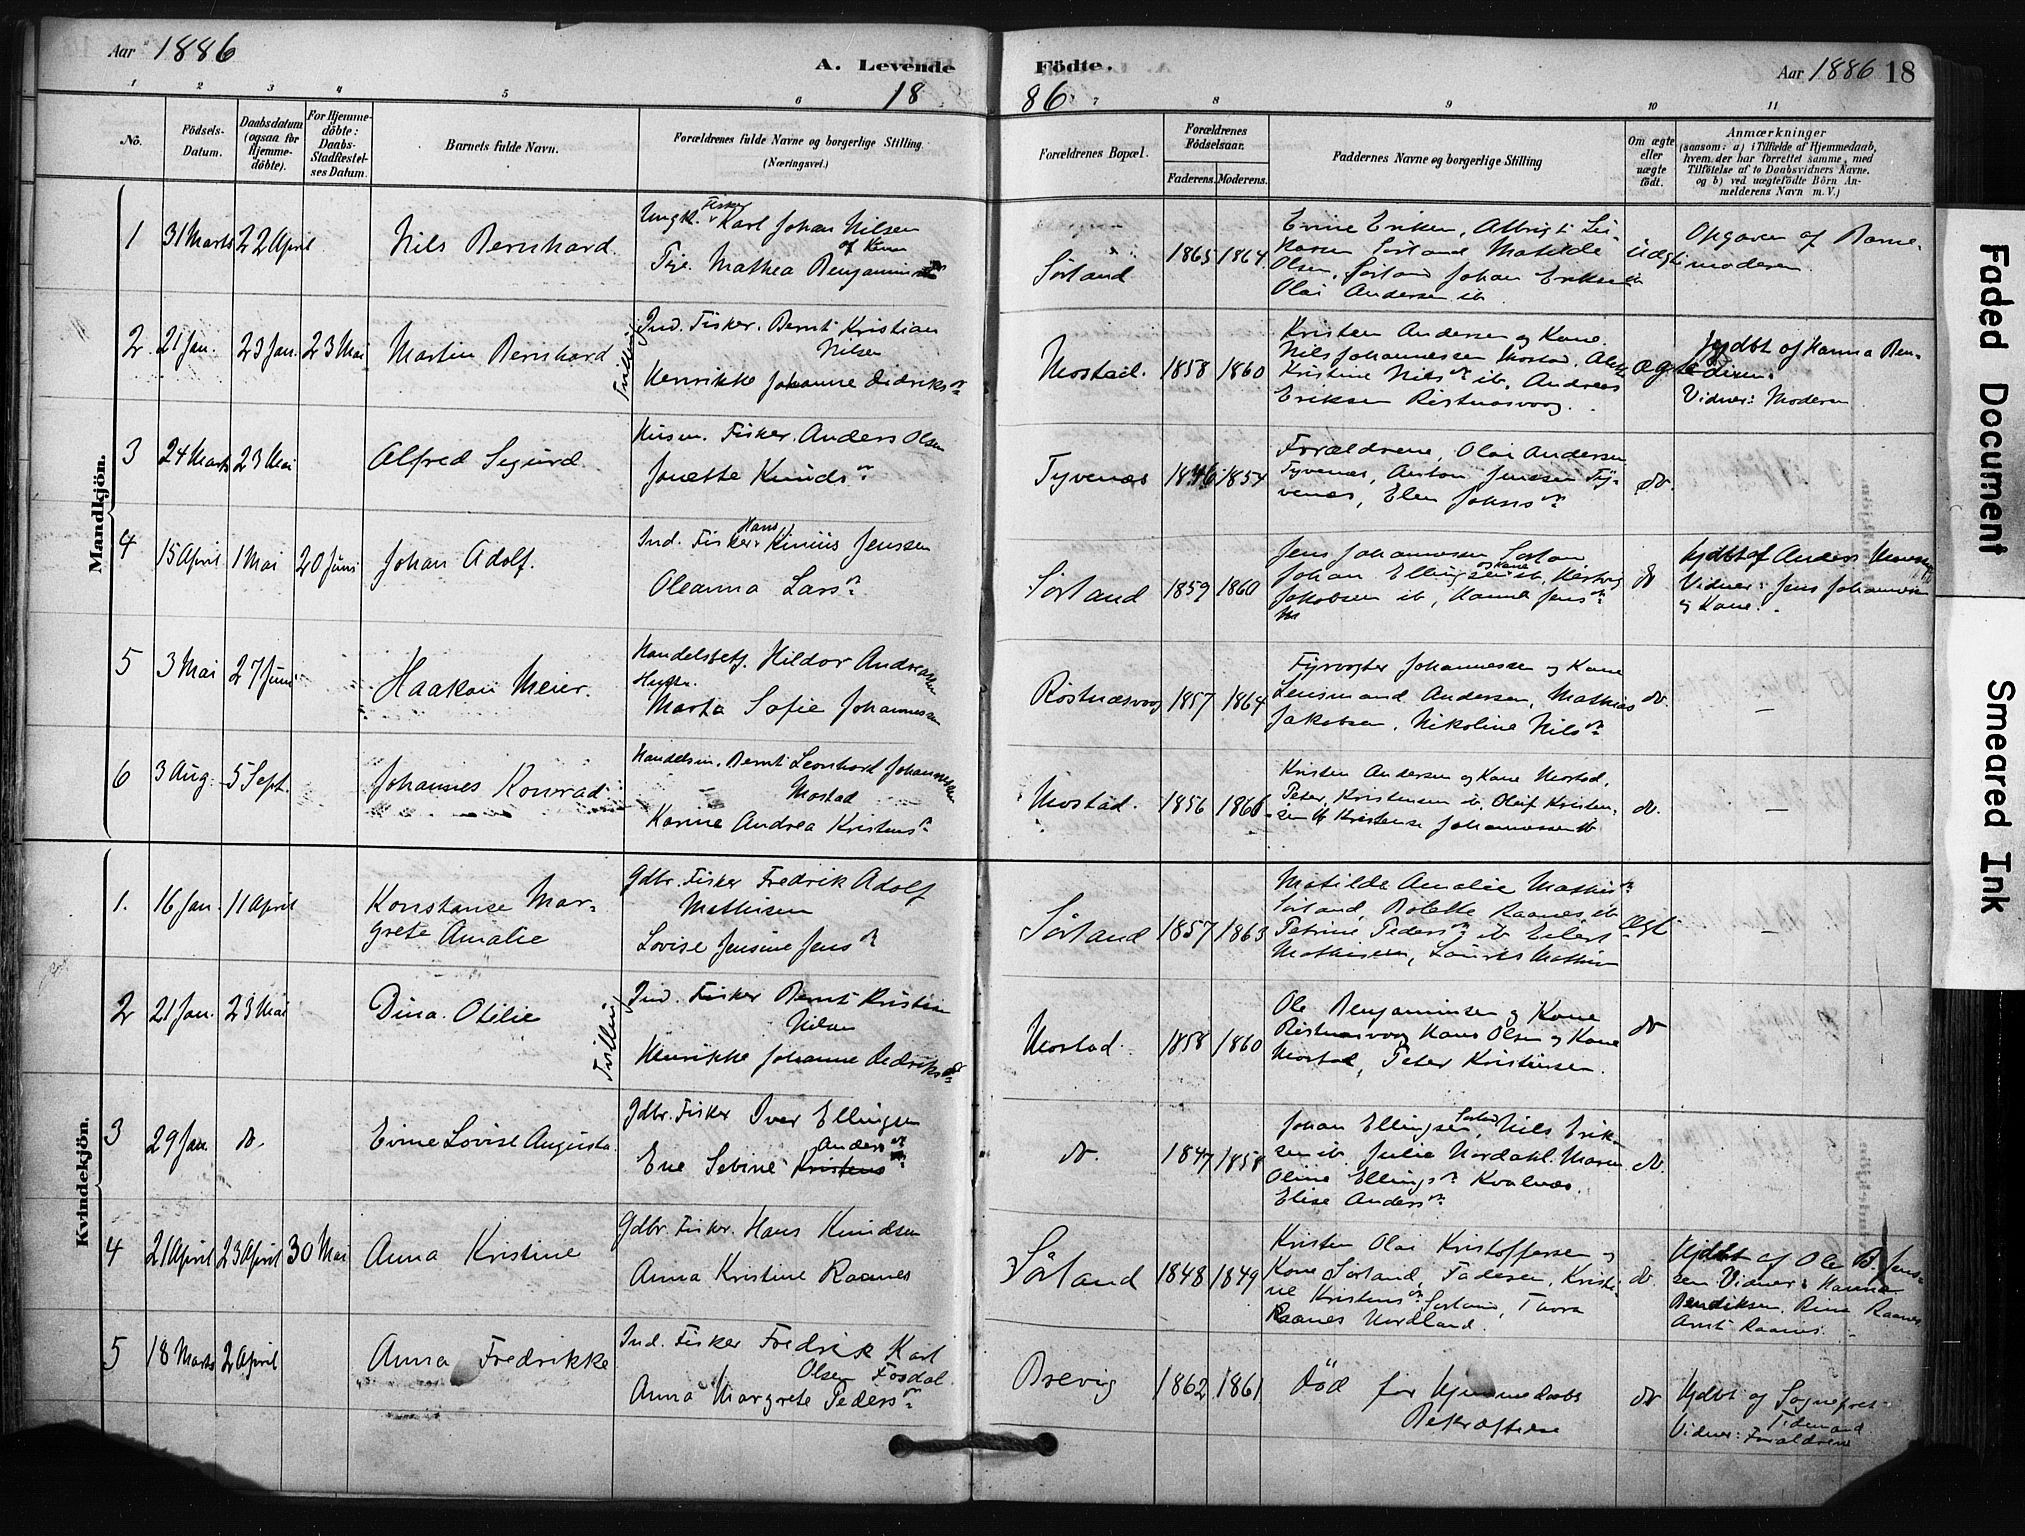 Aar 1886
A. Levende
Födte.
Aar 1886 18
18
86
1 2 3 4 5 6 7 8 9 10 11
No.
Födsels-
Datum.
Daabsdatum
(ogsaa för
Hjemme-
döbte).
For Hjemme-
döbte:
Daabs-
Stadfæstel-
ses Datum.
Barnets fulde Navn.
Forældrenes fulde Navne og borgerlige Stilling
(Næringsvei.)
Forældrenes Bopæl.
Forældrenes
Födselsaar.
Faderens. Moderens.
Faddernes Navne og borgerlige Stilling
Om ægte
eller
uægte
födt.
Anmærkninger
(saasom: a) i Tilfælde af Hjemmedaab,
hvem der har forrettet samme, med
Tilföielse af to Daabsvidners Navne.
og b) ved uægtefödte Börn An-
melderens Navn m. V.)
Mandkjön.
1 31 Marts 22 April Nils Bernhard
Ungk. Fisker Karl Johan Nilsen
Pige. Mathea Benjamins
Sörland 1865 1864
Olsen, Sörland Johan Eriksen
Olai Andersen ib.
Uægte
Opgaven af Barne-
moderen.
2. 21 Jan. 23 Jan. 23 Mai Martin Bernhard
Tvilling
Ind. Fisker. Bernt Kristian
Nilsen
Henrikke Johanne Didriksdr
Mostad. 1858 1860
Kristen Andersen og Kone.
Nils Johannessen Mostad,
Kristine Nilsdr ib, Andreas
Eriksen Röstnæsvaag.
ægte
Hjdbt af Hanna Ben-
diksen.
Vidner: Moderen
3 24 Marts 23 Mai Alfred Sigurd
Husm. Fisker. Anders Olsen
Jonette Knudsdr
Tyvenæs 1846 1854
Forældrene, Olai Andersen
Tyvenæs, Anton Jensen Ty-
venæs, Elen Johnsdr
do.
4 15 April 1 Mai 20 Juni Johan Adolf.
Ind. Fisker. Hans Kinius Jenssen
Oleanna Larsdr
Sörland 1859 1860
Jens Johannessen Sörland
Johan Ellingsen og Kone ib, Hartvig
Jakobsen ib, Hanna Jensdr
do
Hjdbt af Anders
Vidner: Jens Johannessen
og Kone.
5 3 Mai 27 Juni Haakon Meier.
Handelsbetj. Hildor Andreassen
Hustr.
Marta Sofie Johannessen
Röstnæsvaag 1857 1864
Fyrvogter Johannessen og Kone
Lensmand Andersen, Mathias
Jakobsen, Nikoline Nilsdr
do. —
6 3 Aug. 5 Sept. Johannes Konrad
Handelsm. Bernt Leonhard Johannessen
Mostad
Karine Andrea Kristensdr
Mostad. 1856 1866
Kristen Andersen og Kone Mostad,
Peter Kristensen ib. Oluf Kristen-
sen ib Kristense Johannessen ib
do. —
Kvindekjön.
1. 16 Jan. 11 April Konstanse Mar-
grete Amalie
Gdbr. Fisker Fredrik Adolf
Mathisen
Lovise Jensine Jensdr
Sörland 1857 1863
Matilde Amalie Mathisdr
Sörland, Bolette Raanes ib
Petrine Pedersdr ib Eilert
Mathisen, Laurits Mathisen
Ægte —
2 21 Jan. 23 Mai Dina Otilie
Tvilling
Ind. Fisker Bernt Kristian
Nilsen
Henrikke Johanne Didriksdr
Mostad. 1858 1860
Ole Benjaminsen og Kone
Röstnæsvaag Hans Olsen og Kone
Mostad, Peter Kristensen.
do
3 29 Jan. do. Evine Lovise Augusta
Gdbr. Fisker Iver Ellingsen
Anders
Ene Sebine Kristens
do. 1847 1858
Johan Ellingsen Sörland, Nils Erik-
sen ib. Julie Nordahl. Maren
Oline Ellingsdr Kvalnæs.
Elise Andersdr
do.
4 21 April 23 April 30 Mai Anna Kristine
Gdbr. Fisker. Hans Knudsen
Anna Kristine Raanes
Sörland 1848 1849
Kristen Olai Kristoffersen og
Kone Sörland, Faderen, Kristi-
ne Kristensdr Sörland, Thora
Raanes Nordland.
do.
Hjdbt af Ole B. Jens-
sen Vidner: Hanna
Bendiksen. Rina Raanes
Arnt Raanes.
5 18 Marts 2 April Anna Fredrikke
Ind. Fisker Fredrik Karl
Olsen Fosdal.
Anna Margrete Pedersdr
Brevig 1862 1861
Död før Hjemmedaabs
Bekræftelse
do
Hjdbt og Sognepræst
Tidemand
Vidner: Forældrene
Faded Document
Smeared Ink